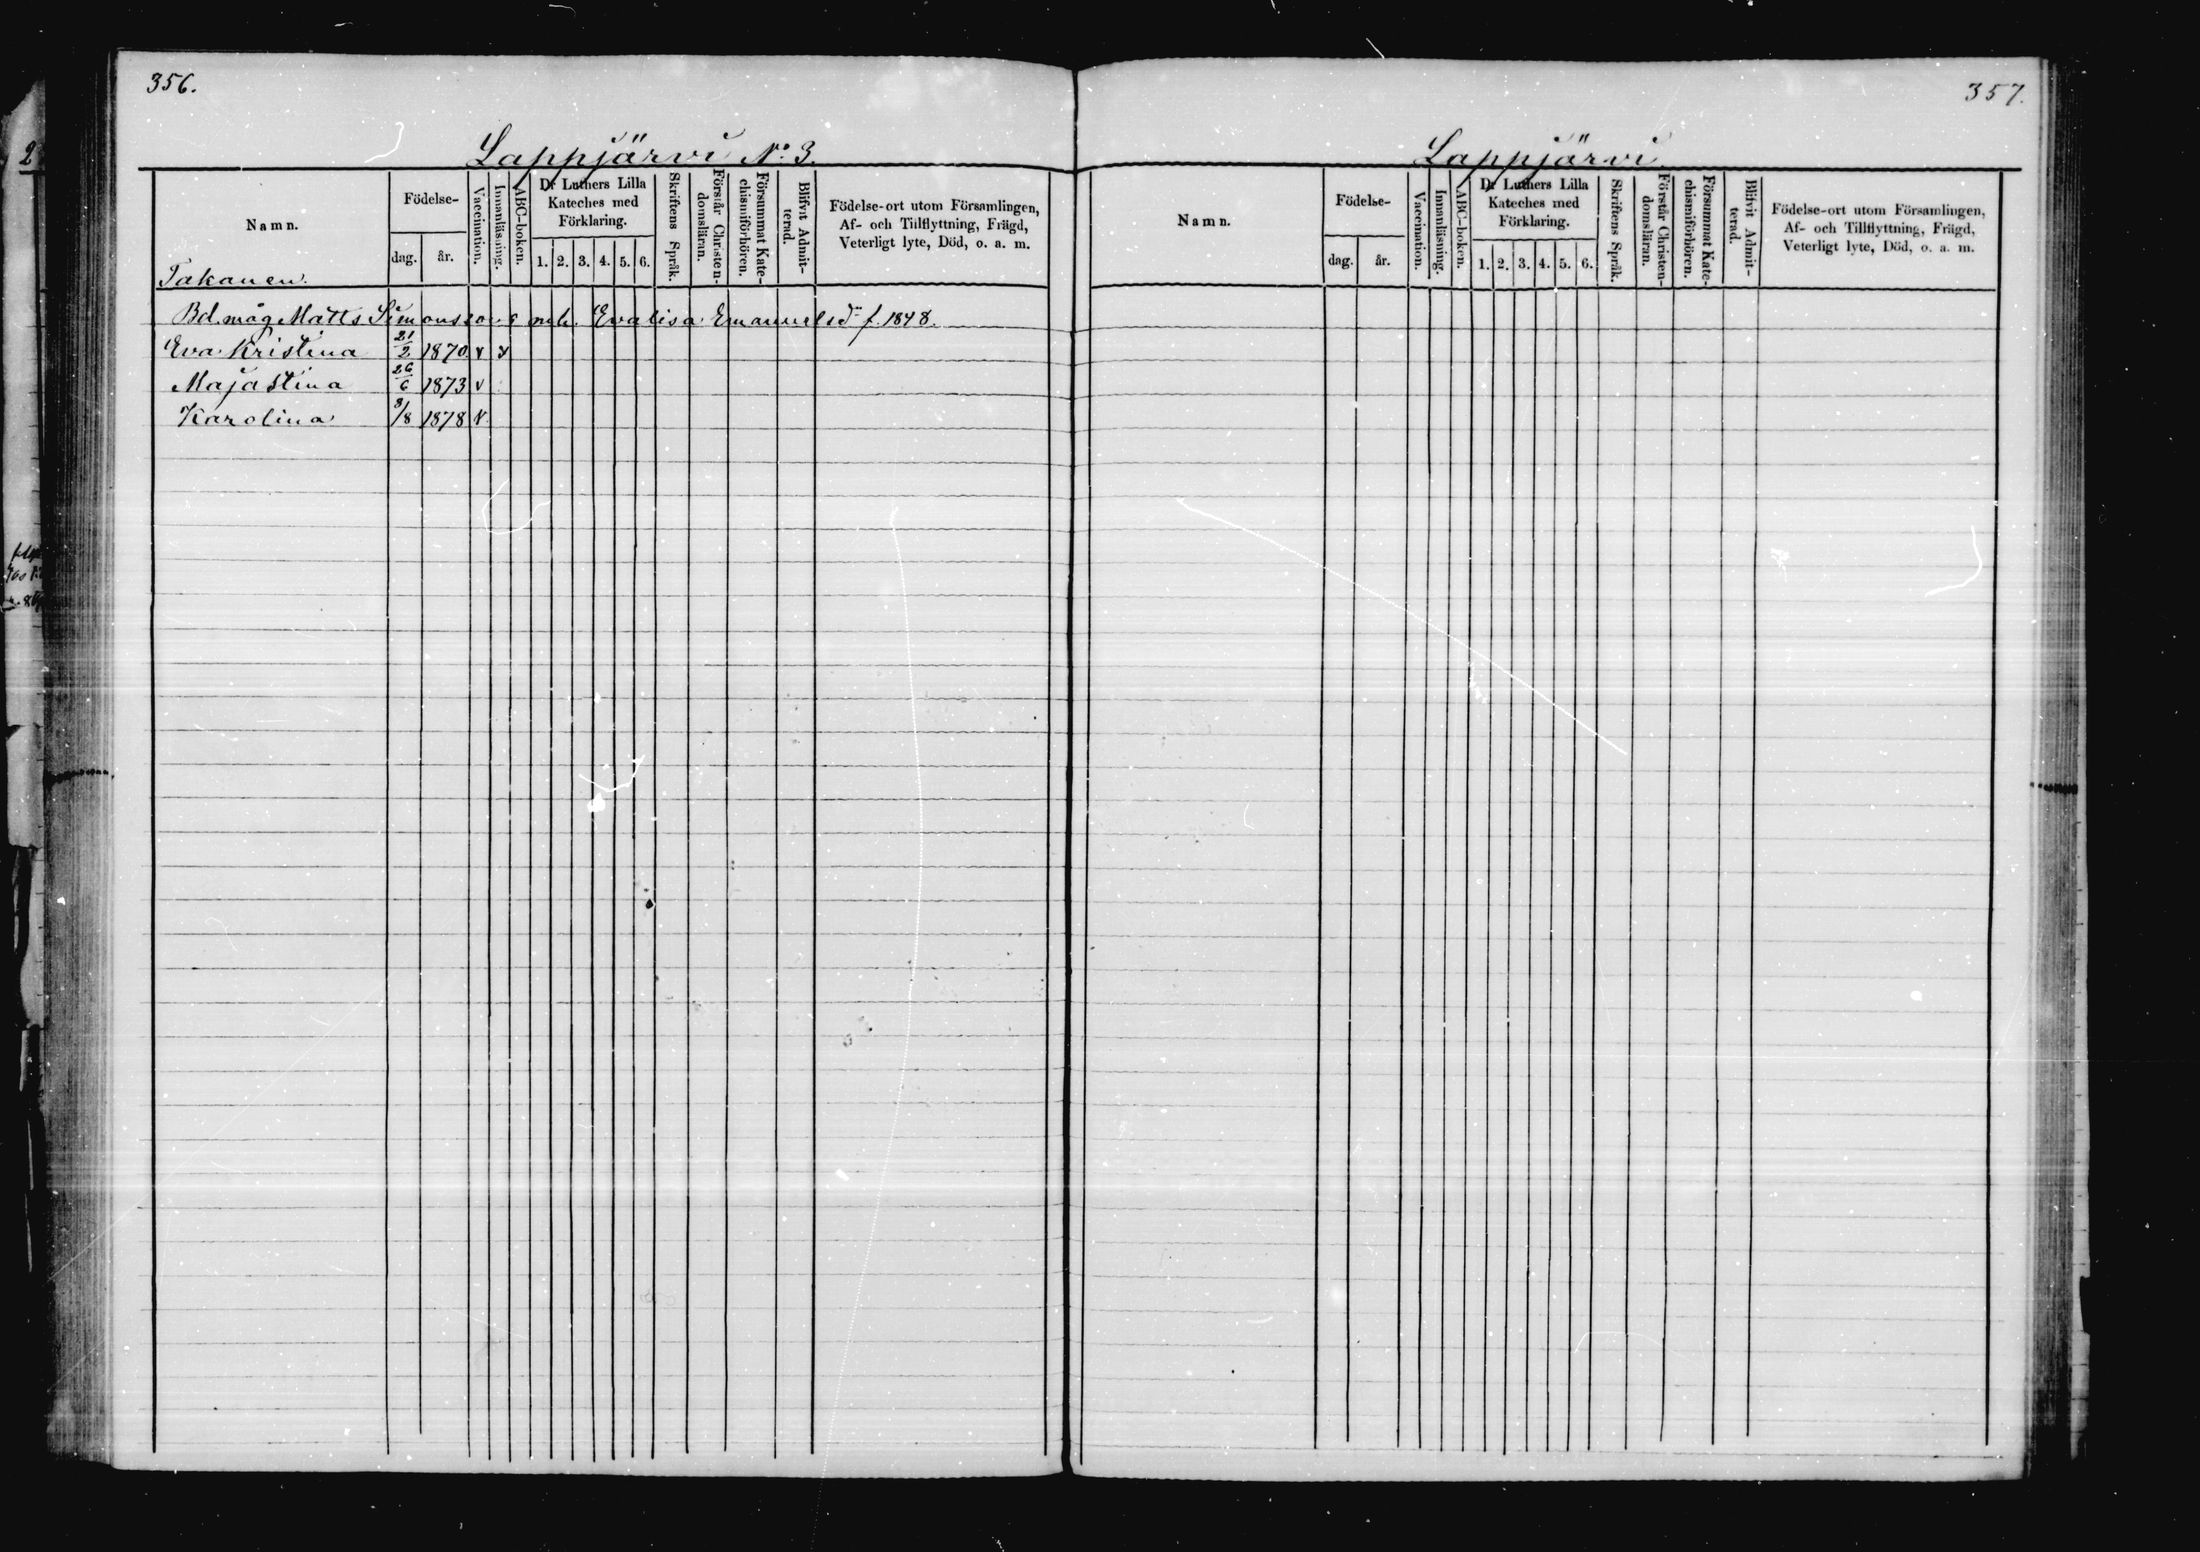 356.
Lappjärvi No 3.
Namn.
Födelse-
dag.
år.
Vaccination.
Innanläsning.
ABC-boken.
Dr Luthers Lilla
Kateches med
Förklaring.
1. 2. 3. 4. 5. 6.
Skriftens Språk.
Förstår Christen-
domsläran.
Försummat Kate-
chismiförhören.
Blifvit Admit-
terad.
Födelse-ort utom Församlingen,
Af- och Tillflyttning, Frägd,
Veterligt lyte, Död, o. a. m.
Takanen.
Bd. måg Matts Simons o. Evalisa Emanuelsdr f. 1848.
Eva Kristina 21/2 1870 v v
Majastina 26/6 1873 v
Karolina 8/8 1878 v
357.
Lappjärvi
Namn.
Födelse-
dag.
år.
Vaccination.
Innanläsning.
ABC-boken.
Dr Luthers Lilla
Kateches med
Förklaring.
1. 2. 3. 4. 5. 6.
Skriftens Språk.
Förstår Christen-
domsläran.
Försummat Kate-
chismiförhören.
Blifvit Admit-
terad.
Födelse-ort utom Församlingen,
Af- och Tillflyttning, Frägd,
Veterligt lyte, Död, o. a. m.